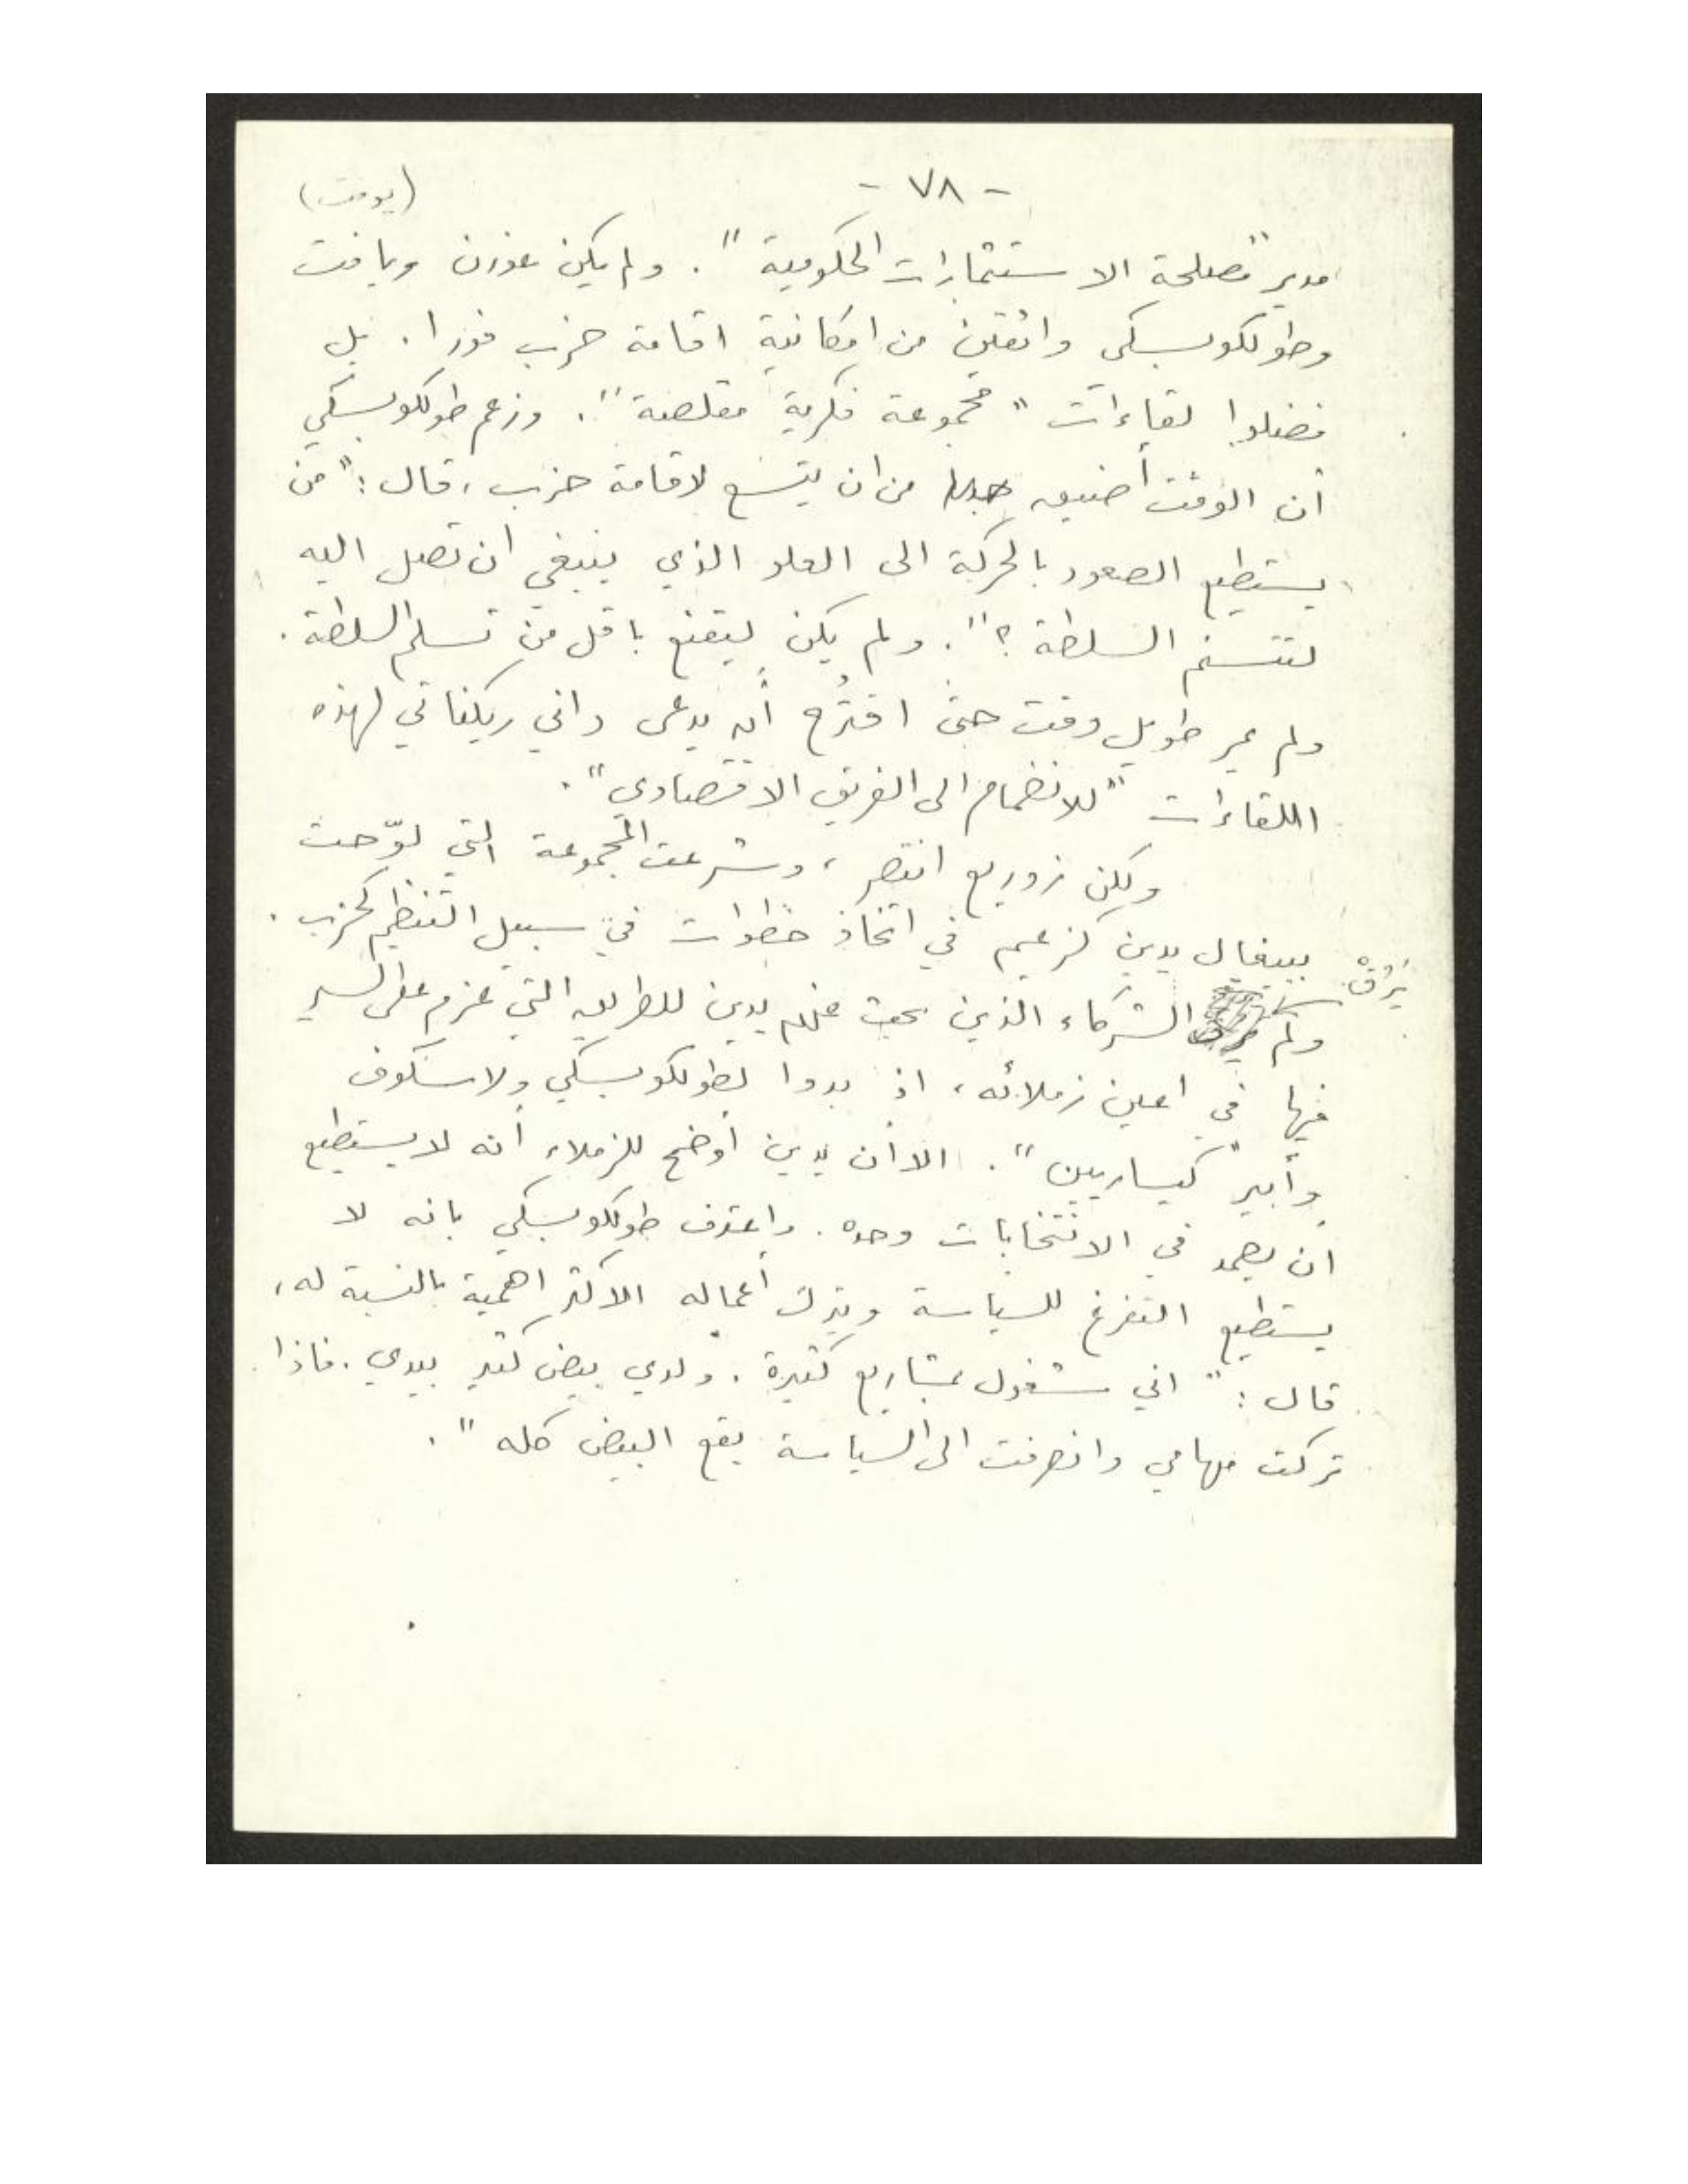 - ٧٨ -
مدير "مصلحة الاستثمارات الحكومية". ولم يكن غورن ويافت
وطولكوبسكي واثقين من امكانية اقامة حزب فورا. بل
فضلوا لقاءات "مجموعة فكرية مقلصة". وزعم طولكوبسكي
أن الوقت أضيق من ان يتسع لاقامة حزب، قال: "من
يستطيع الصعود بالحركة الى العلو الذي ينبغي ان تصل اليه
لتتسنم السلطة؟". ولم يكن ليقنع باقل من تسلم السلطة.
ولم يمر طويل وقت حتى اقترُح أن يدعى داني ريكناتي لهذه
اللقاءات "للانضمام الى الفريق الاقتصادي".
ولكن زوريع انتصر، وشرعت المجموعة التي لوّحت
بييغال يدين كزعيم في اتخاذ خطوات في سبيل التنظيم كحزب.
ولم يَرُقْ الشركاء الذين بحث عنهم يدين للطريق التي عزم على السير
فيها في اعين زملائه، اذ بدوا لطولكوبسكي ولاسكوف
وأبير "كيساريين". الا أن يدين أوضح للزملاء أنه لا يستطيع
ان يصمد في الانتخابات وحده. واعترف طولكوبسكي بانه لا
يستطيع التفرغ للسياسة ويترك أعماله الاكثر اهمية بالنسبة له،
قال: "اني مشغول بمشاريع كثيرة. ولدي بيض كثير بيدي. فاذا
تركت مهامي وانصرفت الى السياسة يقع البيض كله".